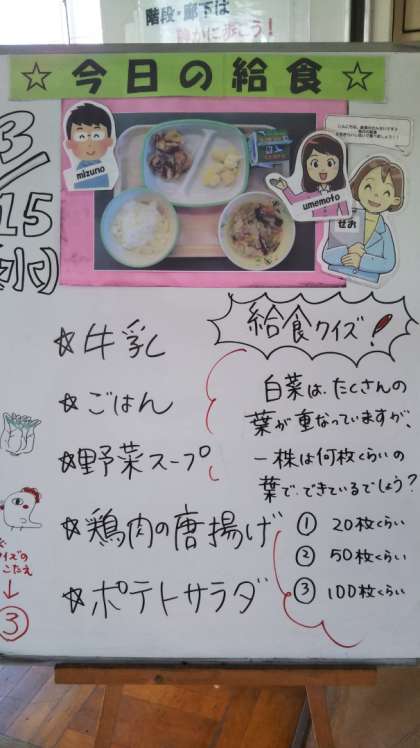 階段・廊下は
静かに歩こう！
☆今日の給食☆
3/15(水)
mizuno
umemoto
せお
給食クイズ！
☆牛乳
☆ごはん
☆野菜スープ
☆鶏肉の唐揚げ
☆ポテトサラダ
白菜は、たくさんの
葉が重なっていますが、
一株は何枚くらいの
葉で、できているでしょう？
① 20枚くらい
② 50枚くらい
③ 100枚くらい
クイズの
こたえ
↓
③